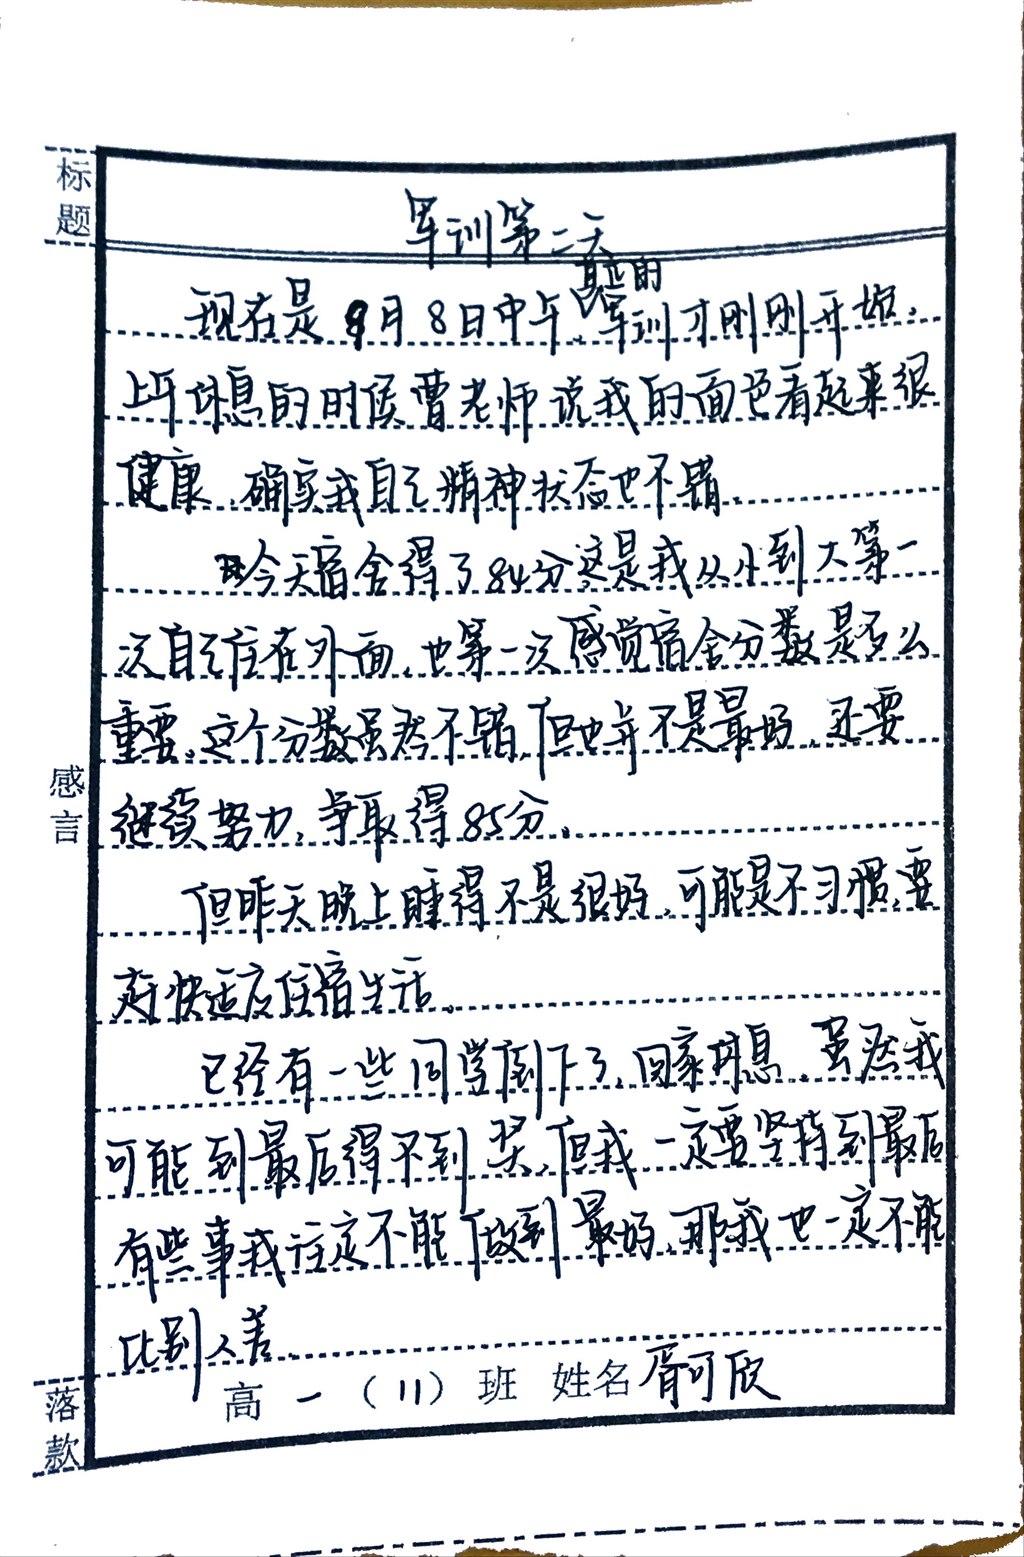 标题
军训第二天
真正的
现在是9月8日中午,军训才刚刚开始。
上午休息的时候曹老师说我的面色看起来很
健康,确实我自己精神状态也不错。
今天宿舍得了84分,这是我从小到大第一
次自己住在外面,也第一次感觉宿舍分数是多么
重要。这个分数虽然不错,但也并不是最好,还要
感言
继续努力,争取得85分。
但昨天晚上睡得不是很好,可能是不习惯,要
尽快适应住宿生活。
已经有一些同学倒下了,回家休息。虽然我
可能到最后得不到奖,但我一定要坚持到最后
有些事我注定不能做到最好,那我也一定不能
比别人差。
落款
高一(11)班 姓名胥可欣